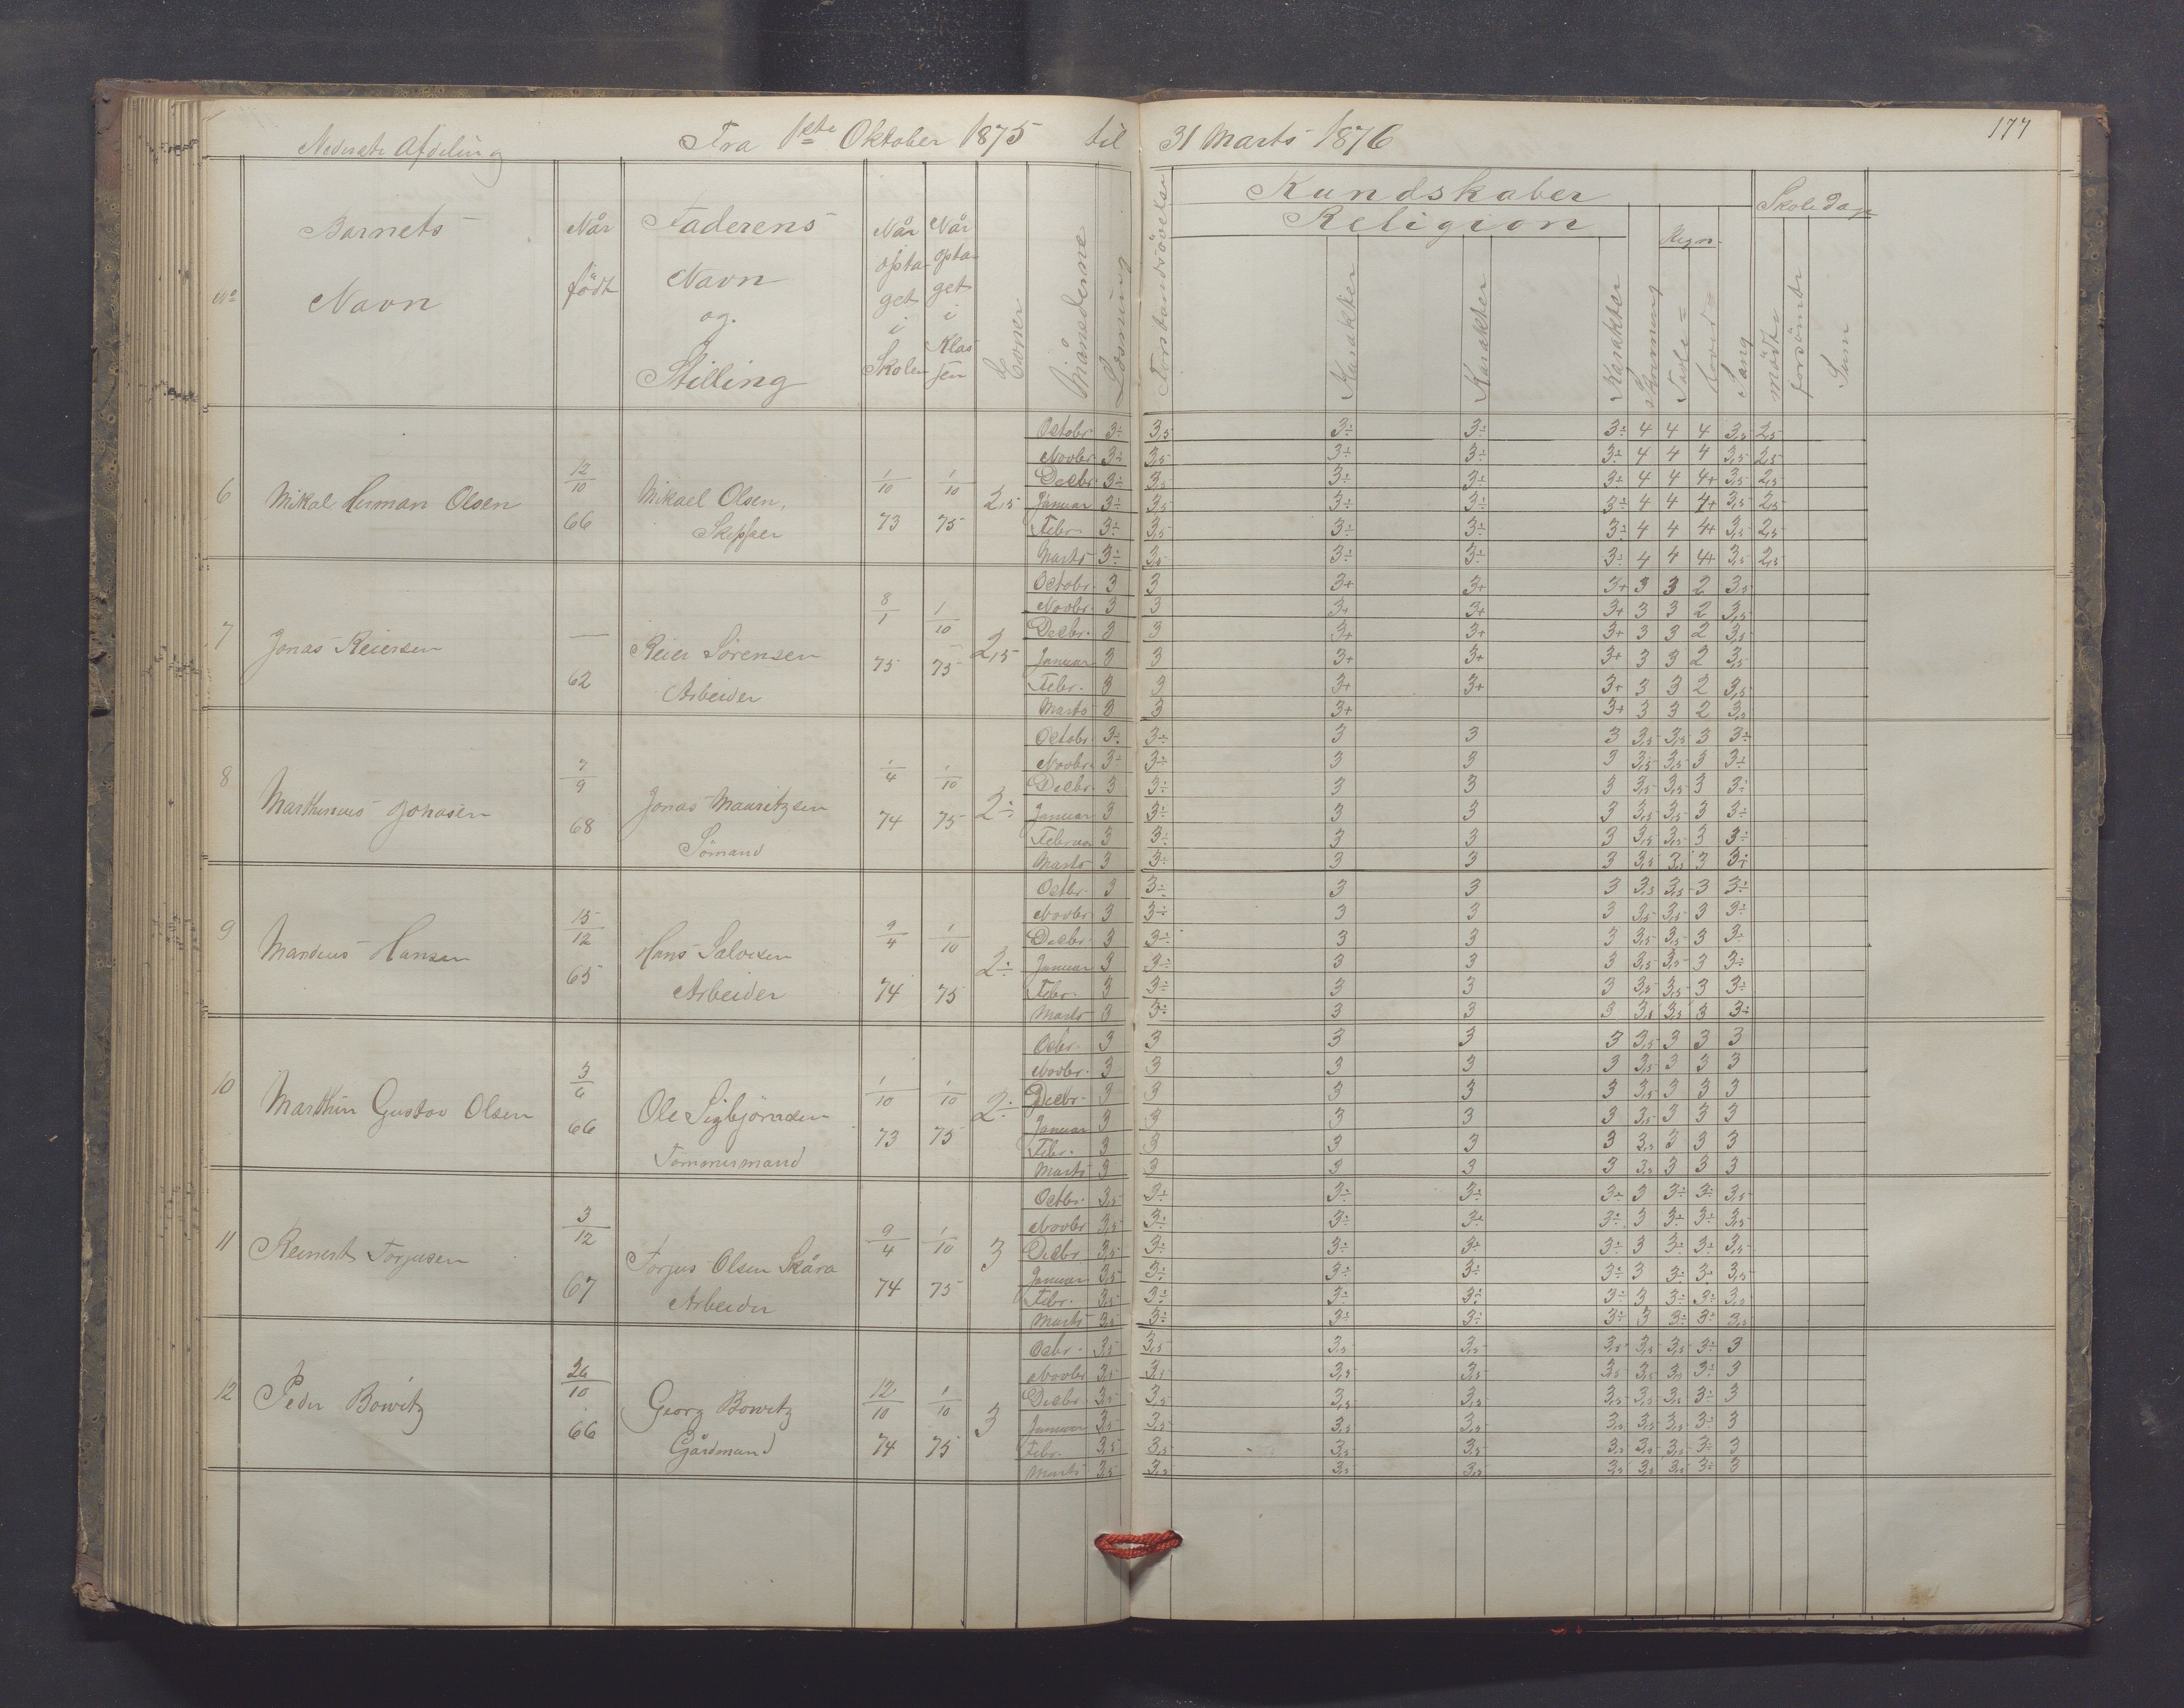 Nederste Afdeling Fra 1ste Oktober 1875 til 31 Marts 1876 177
Kundskaber
Religion
Regn.
Skoledage
No
Barnets Navn
Når født
Faderens Navn og Stilling
Når optaget i Skolen
Når optaget i Klassen
Evner
Månederne
Læsning
Forstandsövelse
Karakter
Karakter
Karakter
Skrivning
Tavle=
Hoved=
Sang
mödte
forsömte
Sum
6 Mikal Herman Olsen 12/10 66 Mikael Olsen, Skipper 1/10 73 1/10 75 2,5
Octobr. 3÷ 3,5 3÷ 3÷ 3÷ 4 4 4 3,5 2,5
Novbr. 3÷ 3,5 3÷ 3÷ 3÷ 4 4 4 3,5 2,5
Decbr. 3÷ 3,5 3÷ 3÷ 3÷ 4 4 4+ 3,5 2,5
Januar 3÷ 3,5 3÷ 3÷ 3÷ 4 4 4+ 3,5 2,5
Febr. 3÷ 3,5 3÷ 3÷ 3÷ 4 4 4+ 3,5 2,5
Marts 3÷ 3,5 3÷ 3÷ 3÷ 4 4 4+ 3,5 2,5
7 Jonas Reiersen — 62 Reier Sörensen Arbeider 8/1 75 1/10 75 2,5
Octobr. 3 3 3+ 3+ 3+ 3 3 2 3,5
Novbr. 3 3 3+ 3+ 3+ 3 3 2 3,5
Decbr. 3 3 3+ 3+ 3+ 3 3 2 3,5
Januar 3 3 3+ 3+ 3+ 3 3 2 3,5
Febr. 3 3 3+ 3+ 3+ 3 3 2 3,5
Marts 3 3 3+ 3+ 3 3 2 3,5
8 Marthinius Johasen 7/9 68 Jonas Mauritzsen Sömand 1/4 74 1/10 75 2÷
Octobr. 3÷ 3÷ 3 3 3 3,5 3,5 3 3÷
Novbr. 3÷ 3÷ 3 3 3 3,5 3,5 3 3÷
Decbr. 3 3÷ 3 3 3 3,5 3,5 3 3÷
Januar 3 3÷ 3 3 3 3,5 3,5 3 3÷
Februar 3 3÷ 3 3 3 3,5 3,5 3 3÷
Marts 3 3÷ 3 3 3 3,5 3,5 3 3÷
9 Mandius Hansen 15/12 65 Hans Salvesen Arbeider 9/4 74 1/10 75 2÷
Octbr. 3 3÷ 3 3 3 3,5 3,5 3 3÷
Novbr 3 3÷ 3 3 3 3,5 3,5 3 3÷
Decbr. 3 3÷ 3 3 3 3,5 3,5 3 3÷
Januar 3 3÷ 3 3 3 3,5 3,5 3 3÷
Febr. 3 3÷ 3 3 3 3,5 3,5 3 3÷
Marts 3 3÷ 3 3 3 3,5 3,5 3 3÷
10 Marthin Gustav Olsen 3/6 66 Ole Sigbjörnsen Tömmermand 1/10 73 1/10 75 2÷
Ocbr. 3 3 3 3 3 3,5 3 3 3
Novbr. 3 3 3 3 3 3,5 3 3 3
Decbr. 3 3 3 3 3 3,5 3 3 3
Januar 3 3 3 3 3 3,5 3 3 3
Febr. 3 3 3 3 3 3,5 3 3 3
Marts 3 3 3 3 3 3,5 3 3 3
11 Reinert Torjusen 3/12 67 Torjus Olsen Skåra Arbeider 9/4 74 1/10 75 3
Octbr. 3,5 3÷ 3÷ 3÷ 3÷ 3 3÷ 3÷ 3,5
Novbr 3,5 3÷ 3÷ 3÷ 3÷ 3 3÷ 3÷ 3,5
Decbr 3,5 3÷ 3÷ 3÷ 3÷ 3 3÷ 3÷ 3,5
Januar 3,5 3÷ 3÷ 3÷ 3÷ 3 3÷ 3÷ 3,5
Febr. 3,5 3÷ 3÷ 3÷ 3÷ 3 3÷ 3÷ 3,5
Marts 3,5 3÷ 3÷ 3÷ 3÷ 3 3÷ 3÷ 3,5
12 Peder Bowitz 26/10 66 Georg Bowitz Gårdmand 12/10 74 1/10 75 3
Ocbr. 3,5 3,5 3,5 3,5 3,5 3,5 3,5 3÷ 3
Novbr 3,5 3,5 3,5 3,5 3,5 3,5 3,5 3÷ 3
Decbr. 3,5 3,5 3,5 3,5 3,5 3,5 3,5 3÷ 3
Januar 3,5 3,5 3,5 3,5 3,5 3,5 3,5 3÷ 3
Febr. 3,5 3,5 3,5 3,5 3,5 3,5 3,5 3÷ 3
Marts 3,5 3,5 3,5 3,5 3,5 3,5 3,5 3÷ 3